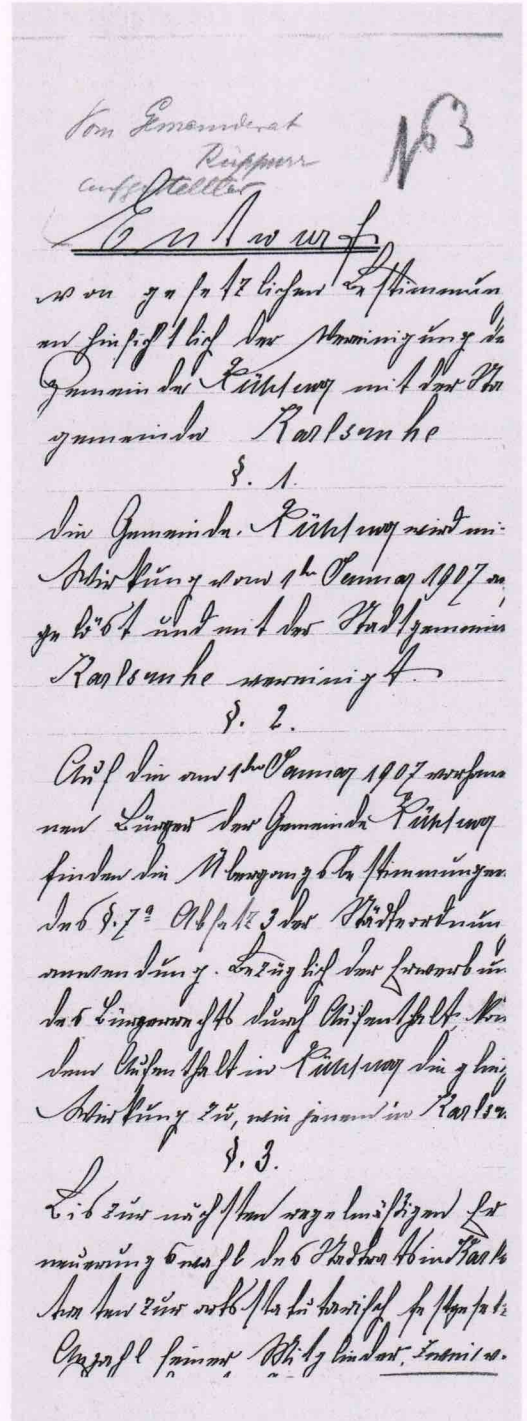 Vom Gemeinderat
Rüppurr
aufgestellter
No 3
Entwurf
von gesetzlichen Bestimmun
en hinsichtlich der Vereinigung de
Gemeinde Rüppurr mit der Sta
gemeinde Karlsruhe
§. 1.
Die Gemeinde Rüppurr wird mi
Wirkung vom 1ten Januar 1907 a
gelöst und mit der Stadtgemein
Karlsruhe vereinigt.
§. 2.
Auf die am 1ten Januar 1907 vorhan
nen Bürger der Gemeinde Rüppurr
finden die Übergangsbestimmungen
des §. 7a Absatz 3 der Städteordnun
anwendung. Bezüglich der Erwerbun
des Bürgerrechts durch Aufenthalt, kom
dem Aufenthalt in Rüppurr die gleic
Wirkung zu, wie jenem in Karlsr
§. 3.
Bis zur nächsten regelmäßigen Er
neuerungswahl des Stadtrats in Karls
treten zur ortsstatutarisch festgeset
Anzahl seiner Mitglieder,